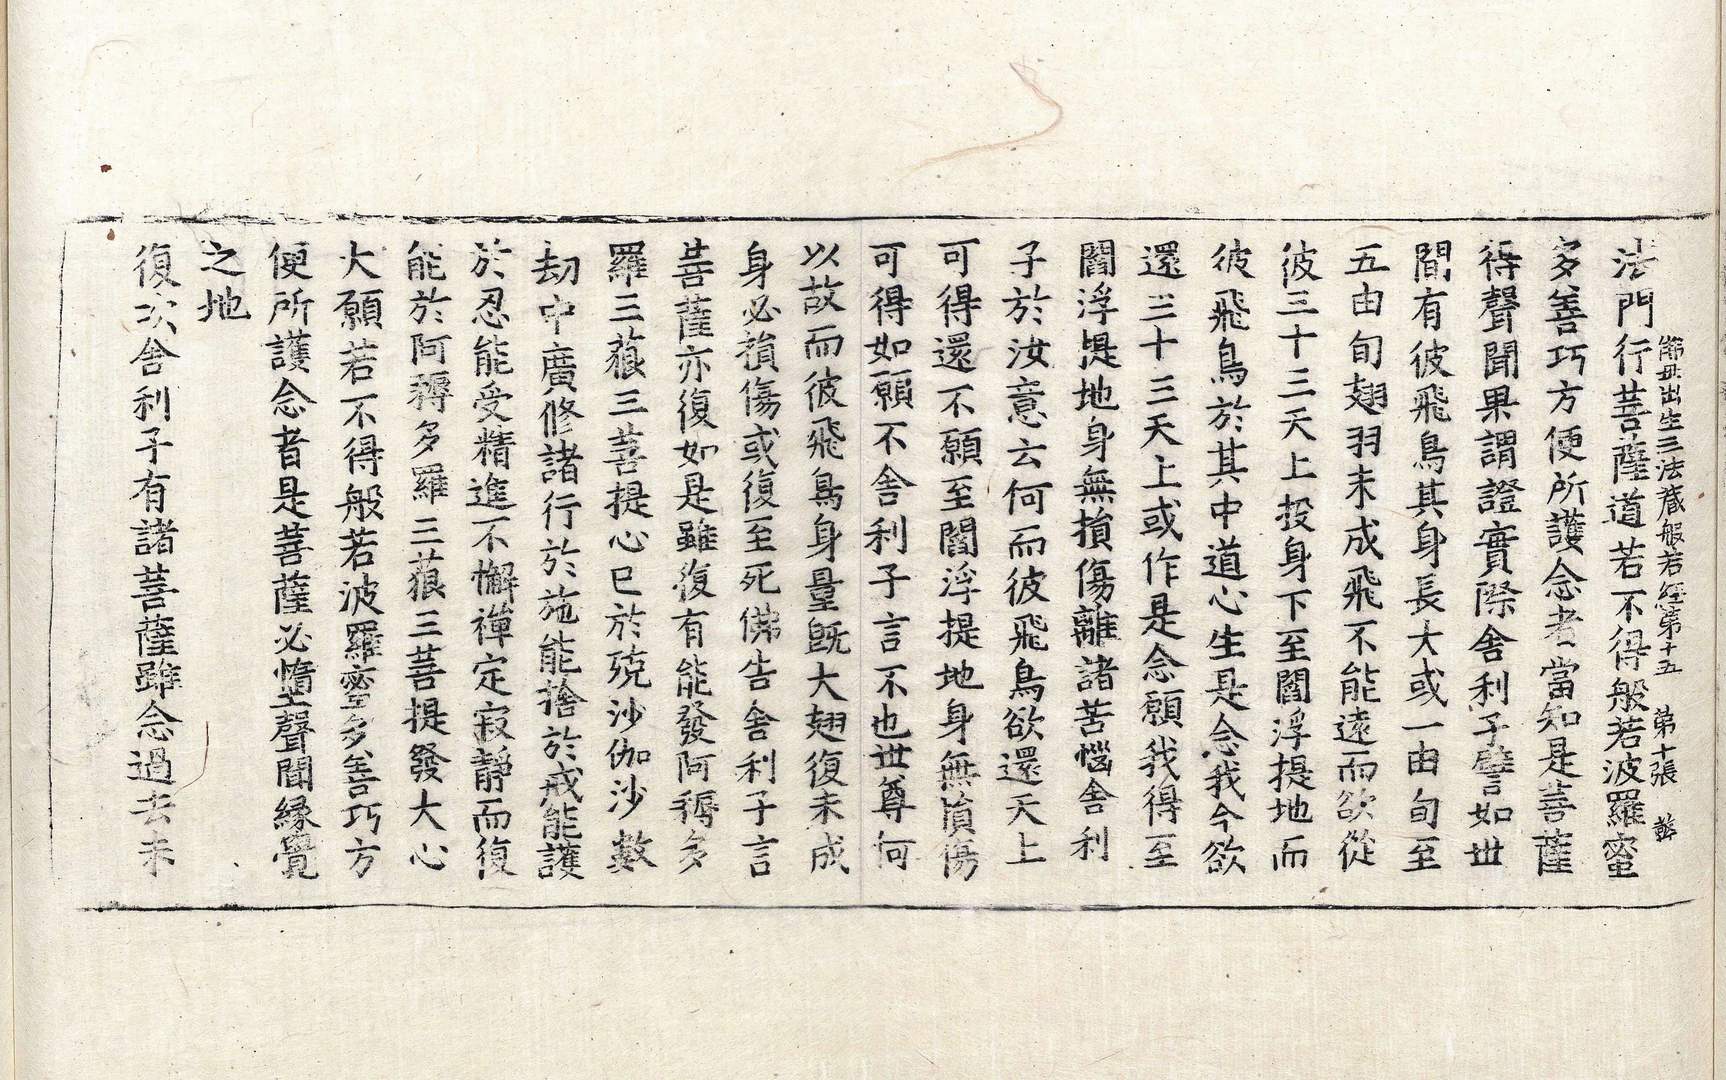 法門行菩薩道若不得般若波羅蜜
佛母出生三法藏般若經第十五 第十張
多善巧方便所護念者當知是菩薩
得聲聞果謂證實際舍利子譬如世
間有彼飛鳥其身長大或一由旬至
五由旬翅羽未成飛不能遠而欲從
彼三十三天上投身下至閻浮提地而
彼飛鳥於其中道心生是念我今欲
還三十三天上或作是念願我得至
閻浮提地身無損傷離諸苦惱舍利
子於汝意云何而彼飛鳥欲還天上
可得還不願至閻浮提地身無損傷
可得如願不舍利子言不也世尊何
以故而彼飛鳥身量既大翅復未成
身必損傷或復至死佛告舍利子言
菩薩亦復如是雖復有能發阿耨多
羅三藐三菩提心已於殑沙伽沙數
劫中廣修諸行於施能捨於戒能護
於忍能受精進不懈禪定寂靜而復
能於阿耨多羅三藐三菩提發大心
大願若不得般若波羅蜜多善巧方
便所護念者是菩薩必墮聲聞緣覺
之地
復次舍利子有諸菩薩雖念過去未